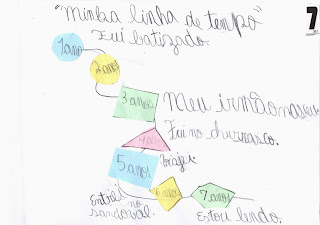 "Minha linha de tempo"
7
1 ano
Fui batizado.
2 anos
3 anos
Meu irmão nasceu
4 anos
Fui no churrasco.
5 anos
Viajei
Entrei no sandoval.
6 anos
7 anos
Estou lendo.